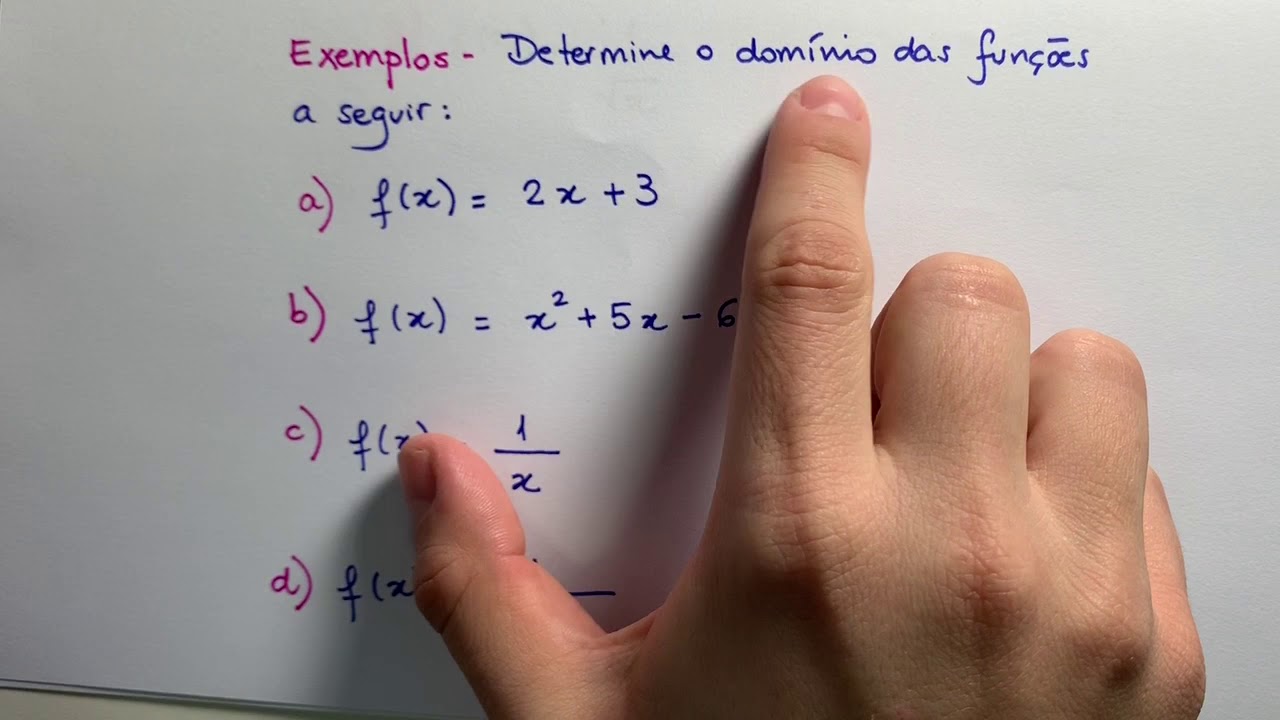 Exemplos - Determine o domínio das funções
a seguir:
a) f(x) = 2x + 3
b) f(x) = x² + 5x - 6
c) f(x) = 1/x
d) f(x